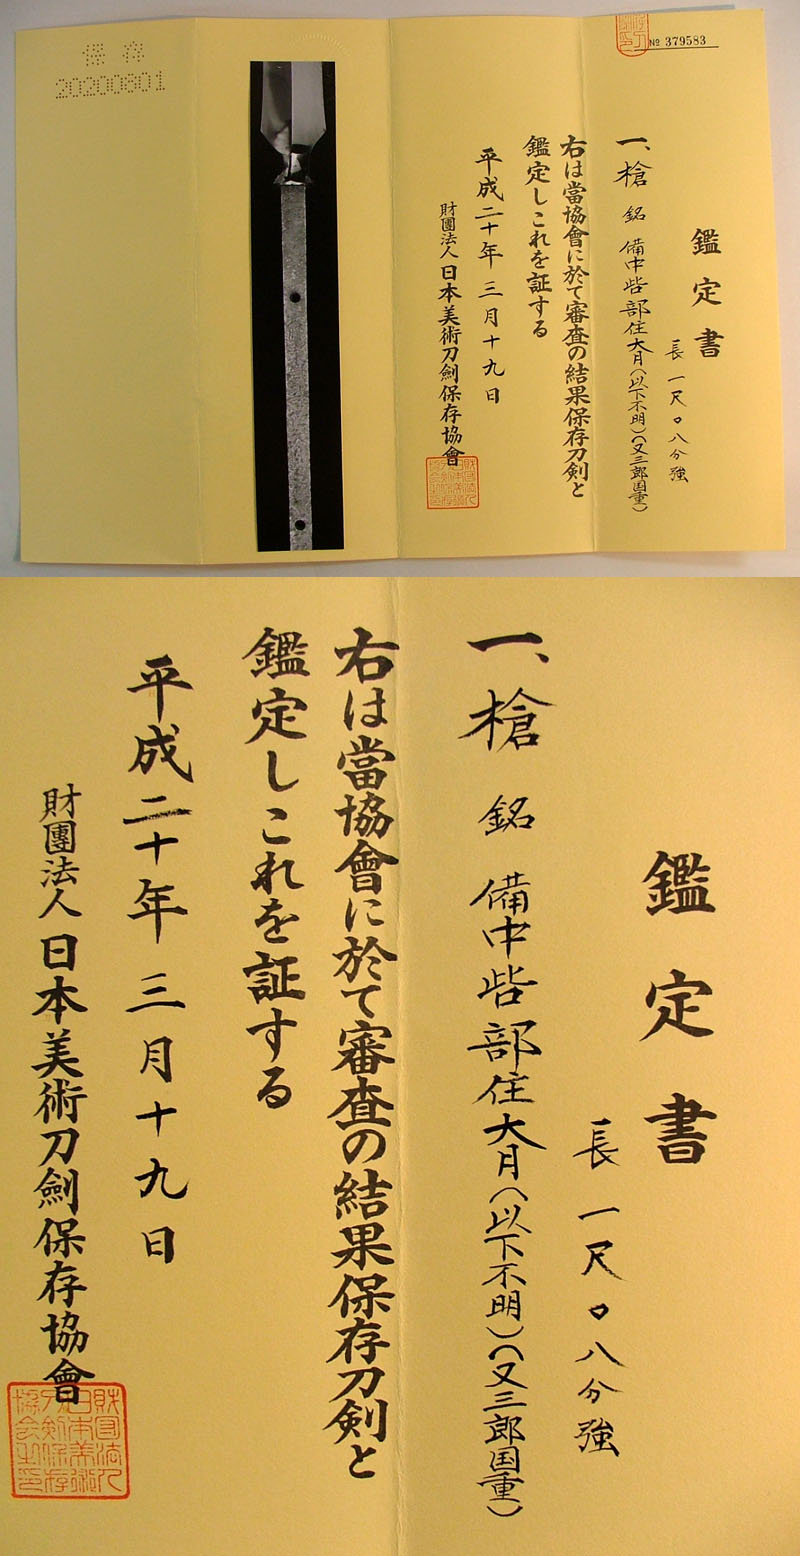 保存
20200801
№ 379583
鑑定書
長 一尺〇八分強
一、槍 銘 備中呰部住大月(以下不明)(又三郎国重)
右は當協會に於て審査の結果保存刀剣と
鑑定しこれを証する
平成二十年三月十九日
財團法人日本美術刀劍保存協會
鑑定書
長 一尺〇八分強
一、槍 銘 備中呰部住大月(以下不明)(又三郎国重)
右は當協會に於て審査の結果保存刀剣と
鑑定しこれを証する
平成二十年三月十九日
財團法人日本美術刀劍保存協會